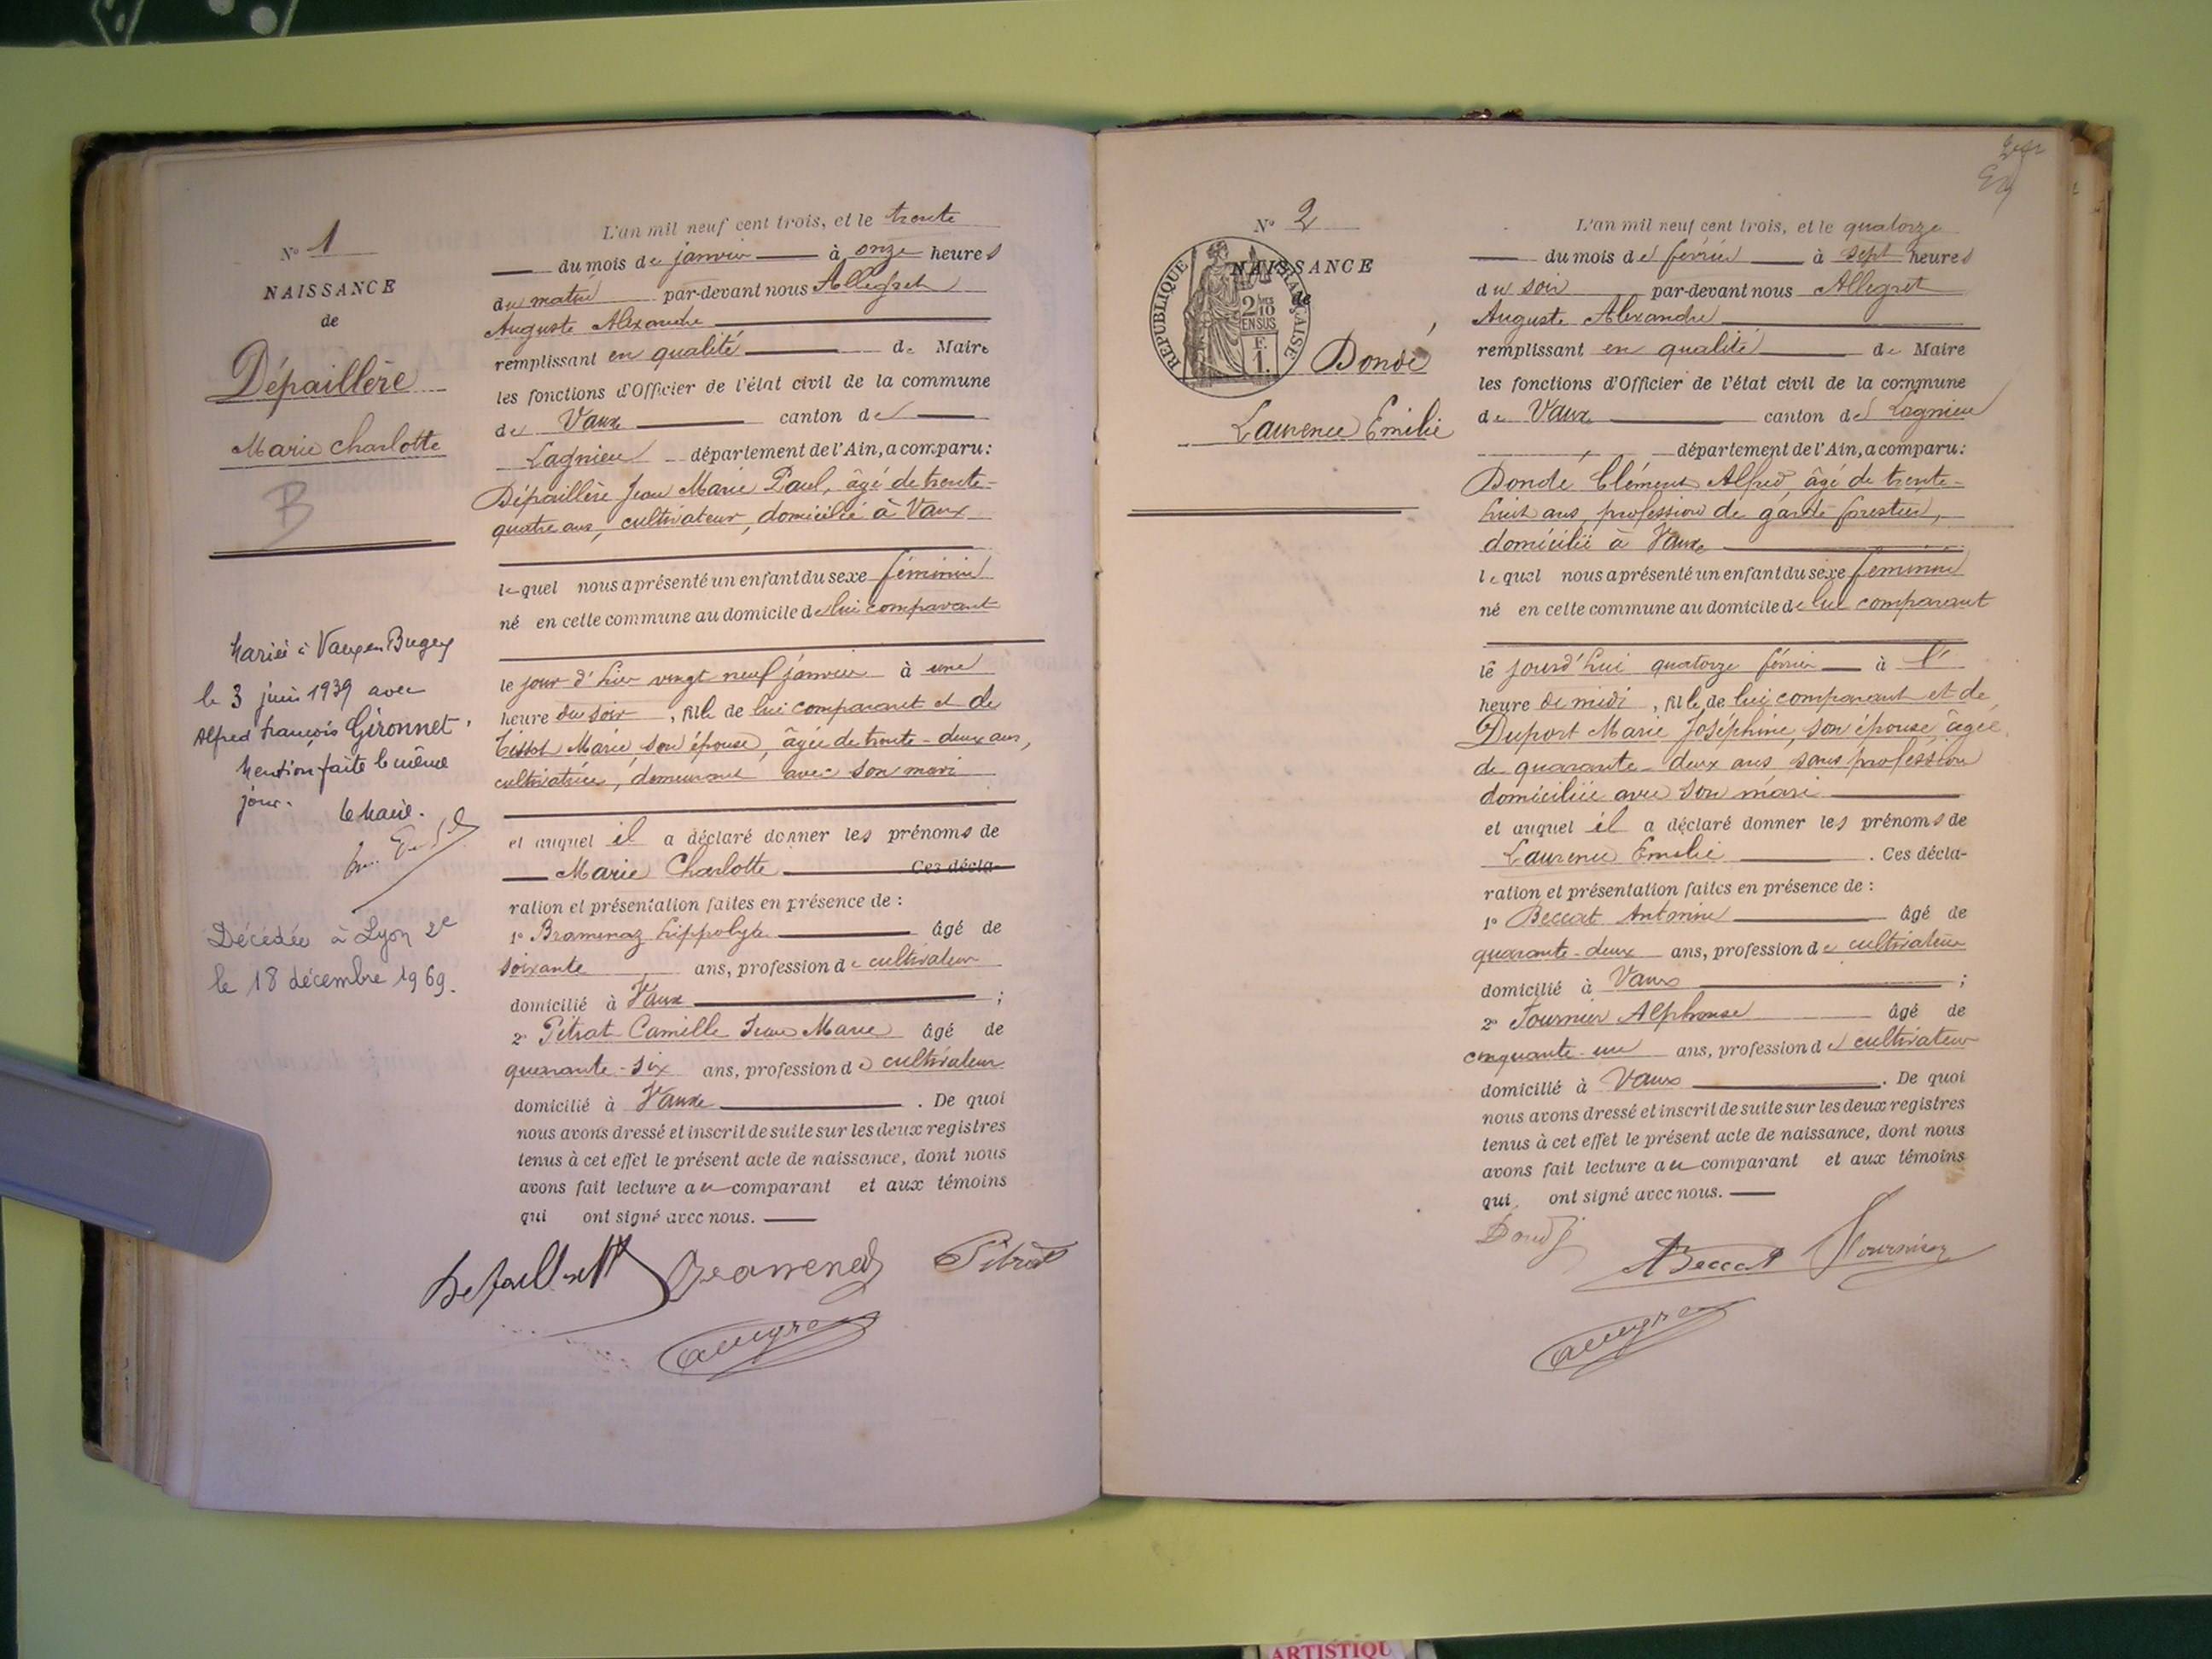 N° 1
NAISSANCE
de
Dépaillère
Marie Charlotte
B
Mariée à Vaux en Bugey
le 3 juin 1939 avec
Alfred François Gironnet.
Mention faite le même
jour. Le Maire.
Décédée à Lyon 2e
le 18 décembre 1969.
L'an mil neuf cent trois, et le trente
du mois de janvier à onze heures
du matin par-devant nous Allegret
Auguste Alexandre
remplissant en qualité de Maire
les fonctions d'Officier de l'état civil de la commune
de Vaux canton de
Lagnieu département de l'Ain, a comparu:
Dépaillère Jean Marie Paul, âgé de trente-
quatre ans, cultivateur, domicilié à Vaux
lequel nous a présenté un enfant du sexe féminin
né en cette commune au domicile de lui comparant
le jour d'hier vingt neuf janvier à une
heure du soir, fille de lui comparant et de
Tissot Marie, son épouse, âgée de trente-deux ans,
cultivatrice, demeurant avec son mari
et auquel il a déclaré donner les prénoms de
Marie Charlotte Ces décla-
ration et présentation faites en présence de :
1° Bramenaz Hippolyte âgé de
soixante ans, profession de cultivateur
domicilié à Vaux ;
2° Pitrat Camille Jean Marie âgé de
quarante-six ans, profession de cultivateur
domicilié à Vaux . De quoi
nous avons dressé et inscrit de suite sur les deux registres
tenus à cet effet le présent acte de naissance, dont nous
avons fait lecture au comparant et aux témoins
qui ont signé avec nous.
Bramenaz Pitrat
N° 2
NAISSANCE
de
RÉPUBLIQUE FRANÇAISE
2/10
EN SUS
F.
1.
Dondé
Laurence Emilie
L'an mil neuf cent trois, et le quatorze
du mois de février à sept heures
du soir par-devant nous Allegret
Auguste Alexandre
remplissant en qualité de Maire
les fonctions d'Officier de l'état civil de la commune
de Vaux canton de Lagnieu
département de l'Ain, a comparu:
Dondé Clément Alfred, âgé de trente-
huit ans, profession de garde forestier,
domicilié à Vaux
lequel nous a présenté un enfant du sexe féminin
né en cette commune au domicile de lui comparant
le jourd'hui quatorze février à
heure de midi, fille de lui comparant et de
Duport Marie Joséphine, son épouse âgée
de quarante-deux ans, sans profession
domiciliée avec son mari
et auquel il a déclaré donner les prénoms de
Laurence Emilie . Ces décla-
ration et présentation faites en présence de :
1° Beccat Antoine âgé de
quarante-deux ans, profession de cultivateur
domicilié à Vaux ;
2° Fournier Alphonse âgé de
cinquante-un ans, profession de cultivateur
domicilié à Vaux . De quoi
nous avons dressé et inscrit de suite sur les deux registres
tenus à cet effet le présent acte de naissance, dont nous
avons fait lecture au comparant et aux témoins
qui ont signé avec nous.
Dondé ABeccat Fournier
ARTISTIQU